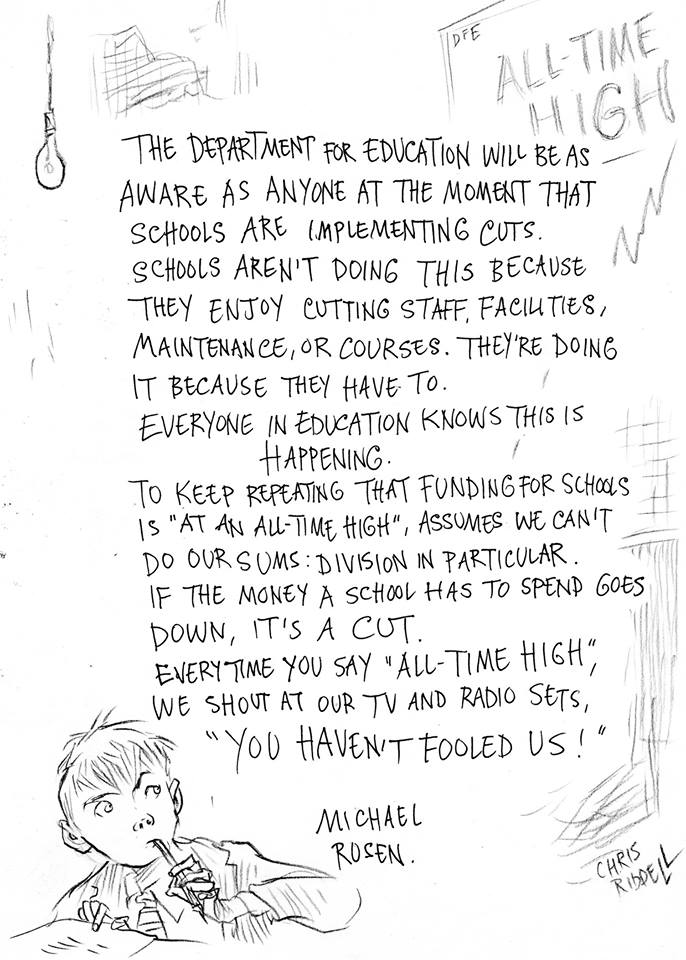 DFE
ALL-TIME
HIGH
THE DEPARTMENT FOR EDUCATION WILL BE AS
AWARE AS ANYONE AT THE MOMENT THAT
SCHOOLS ARE IMPLEMENTING CUTS.
SCHOOLS AREN'T DOING THIS BECAUSE
THEY ENJOY CUTTING STAFF, FACILITIES,
MAINTENANCE, OR COURSES. THEY'RE DOING
IT BECAUSE THEY HAVE TO.
EVERYONE IN EDUCATION KNOWS THIS IS
HAPPENING.
TO KEEP REPEATING THAT FUNDING FOR SCHOOLS
IS "AT AN ALL-TIME HIGH", ASSUMES WE CAN'T
DO OUR SUMS: DIVISION IN PARTICULAR.
IF THE MONEY A SCHOOL HAS TO SPEND GOES
DOWN, IT'S A CUT.
EVERYTIME YOU SAY "ALL-TIME HIGH",
WE SHOUT AT OUR TV AND RADIO SETS,
"YOU HAVEN'T FOOLED US!"
MICHAEL
ROSEN.
CHRIS
RIDDELL